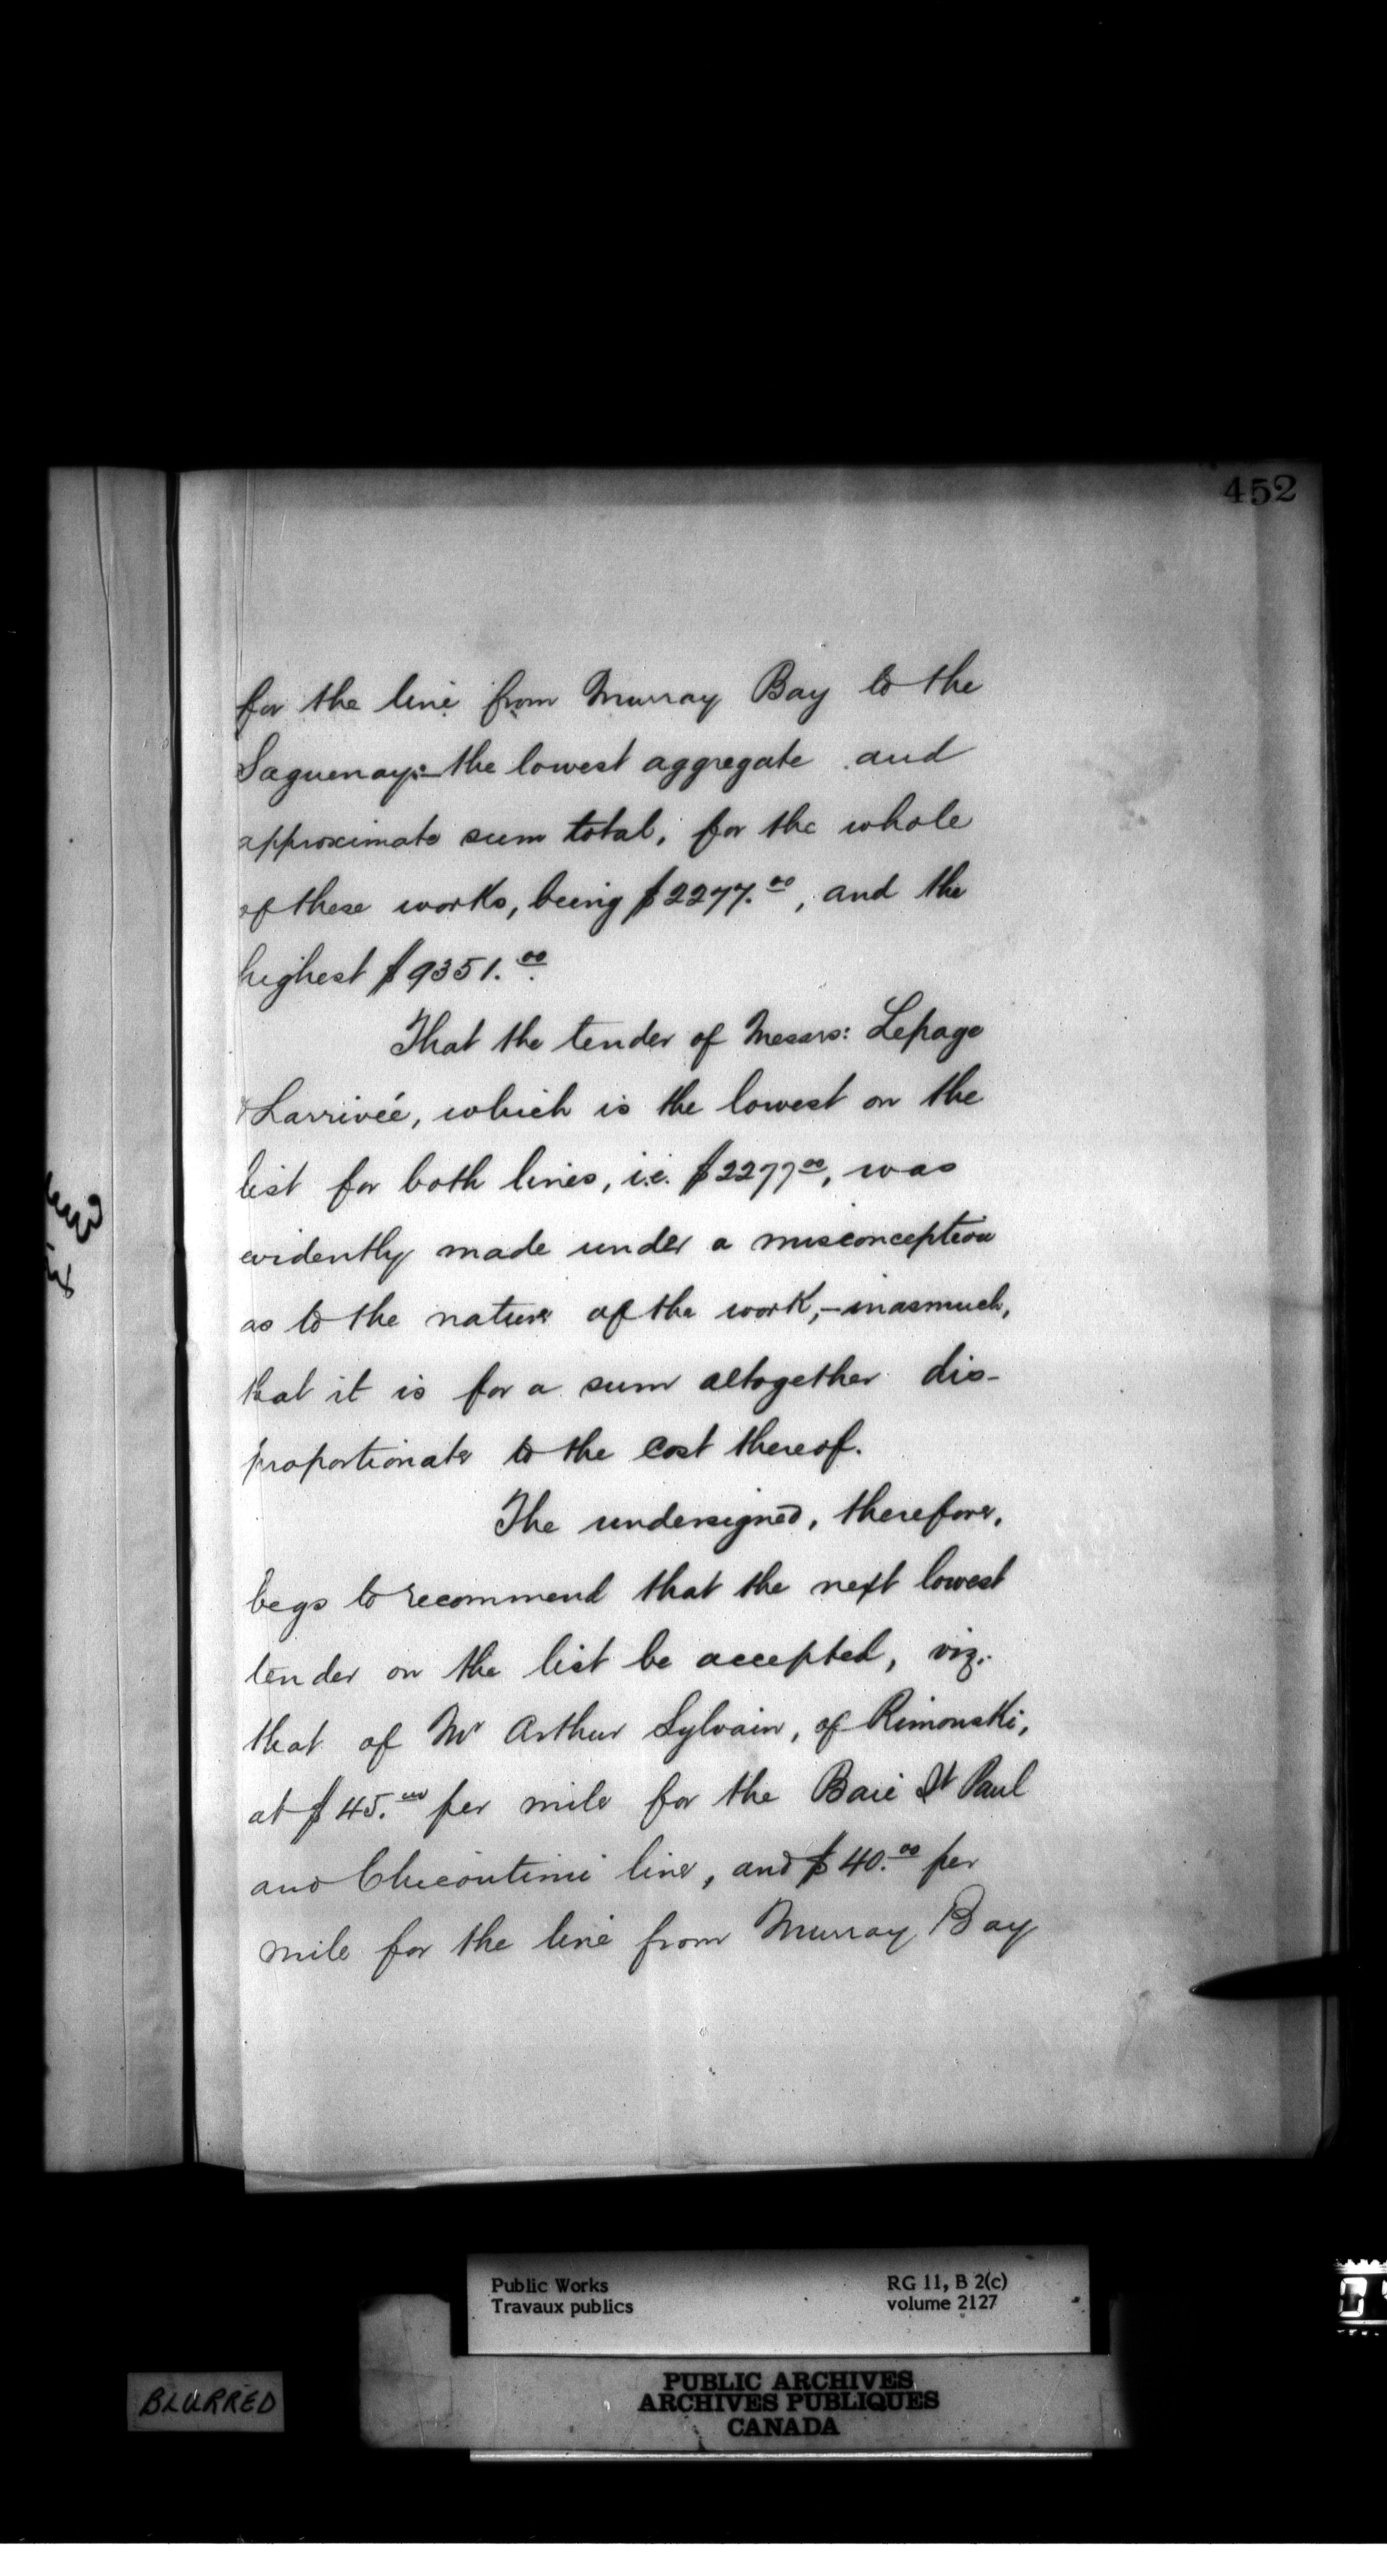 452
for the line from Murray Bay to the
Saguenay:—the lowest aggregate and
approximate sum total, for the whole
of these works, being $2277.00, and the
highest $9351.00
That the tender of Messrs: Lepage
& Larrivée, which is the lowest on the
list for both lines, i.e. $227700, was
evidently made under a misconception
as to the nature of the work,—inasmuch,
that it is for a sum altogether dis-
proportionate to the cost thereof.
The undersigned, therefore,
begs to recommend that the next lowest
tender on the list be accepted, viz:
that of Mr Arthur Sylvain, of Rimouski,
at $45.00 per mile for the Baie St Paul
and Chicoutimi line, and $40.00 per
mile for the line from Murray Bay
Public Works
Travaux publics
RG 11, B 2(c)
volume 2127
BLURRED
PUBLIC ARCHIVES
ARCHIVES PUBLIQUES
CANADA